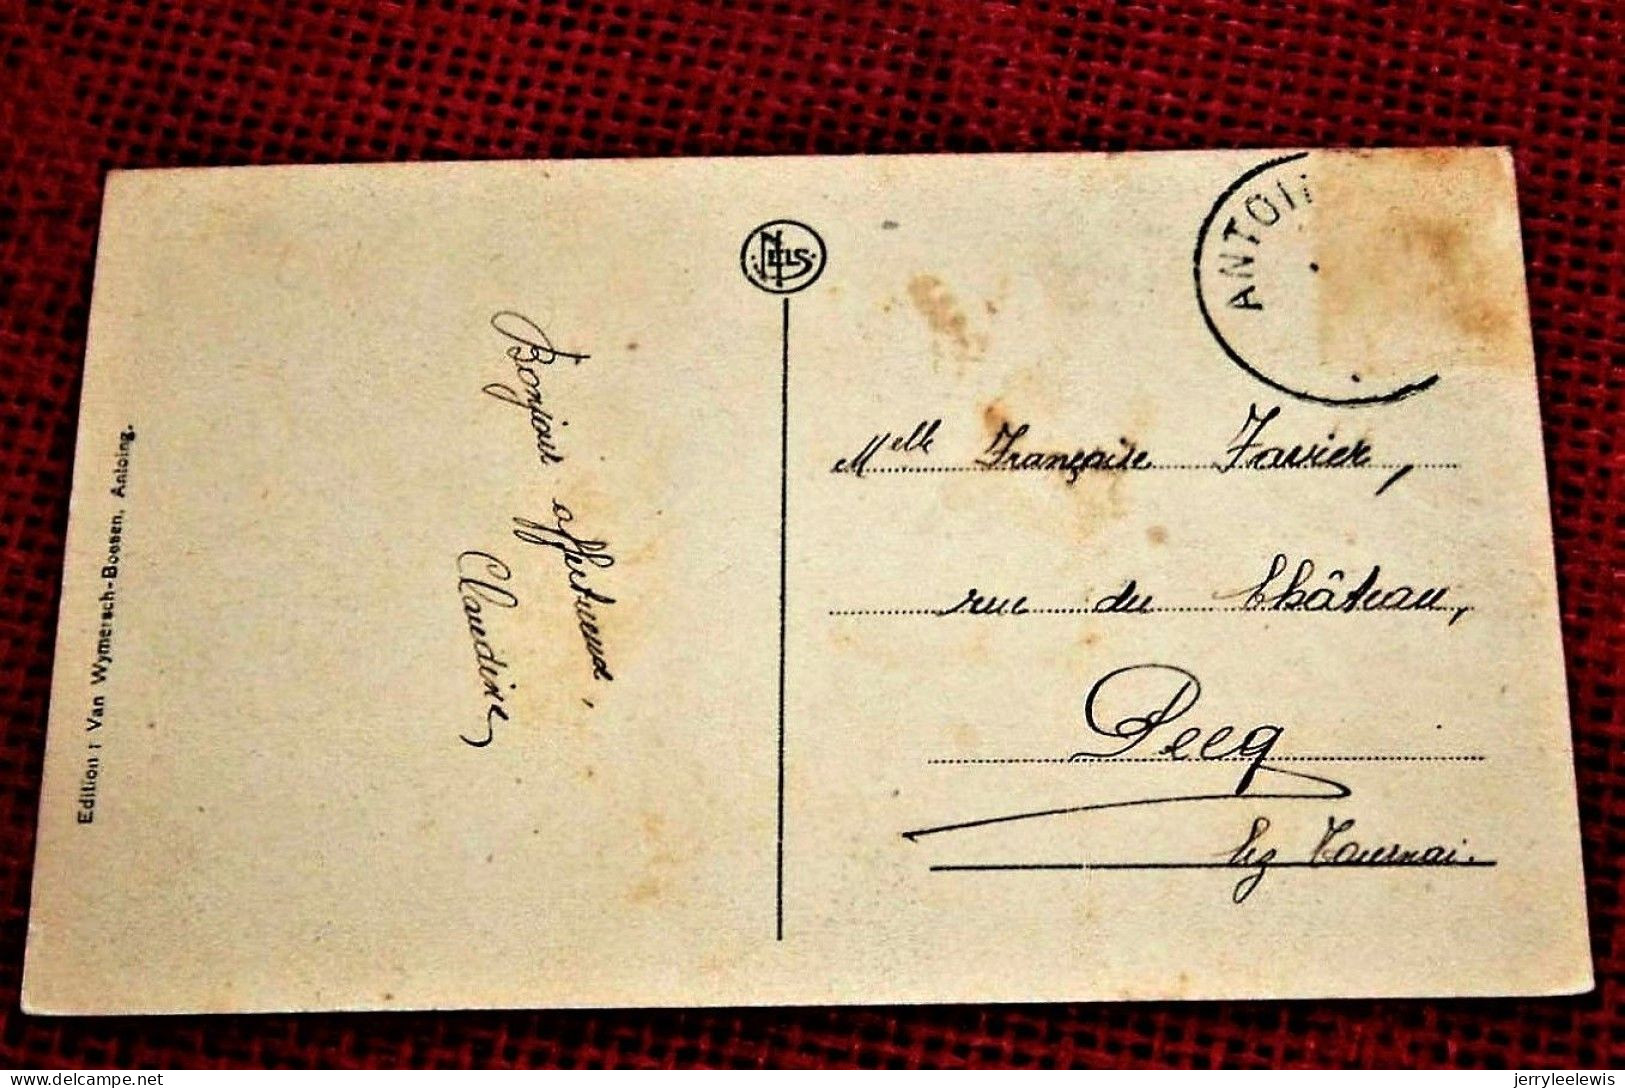 Edition : Van Wymersch-Boesen, Antoing.
Bonjour affectueux,
Claudine
NELS
ANTOI
Melle Françoise Favier,
rue du Château,
Pecq
lez Tournai.
delcampe.net
jerryleelewis